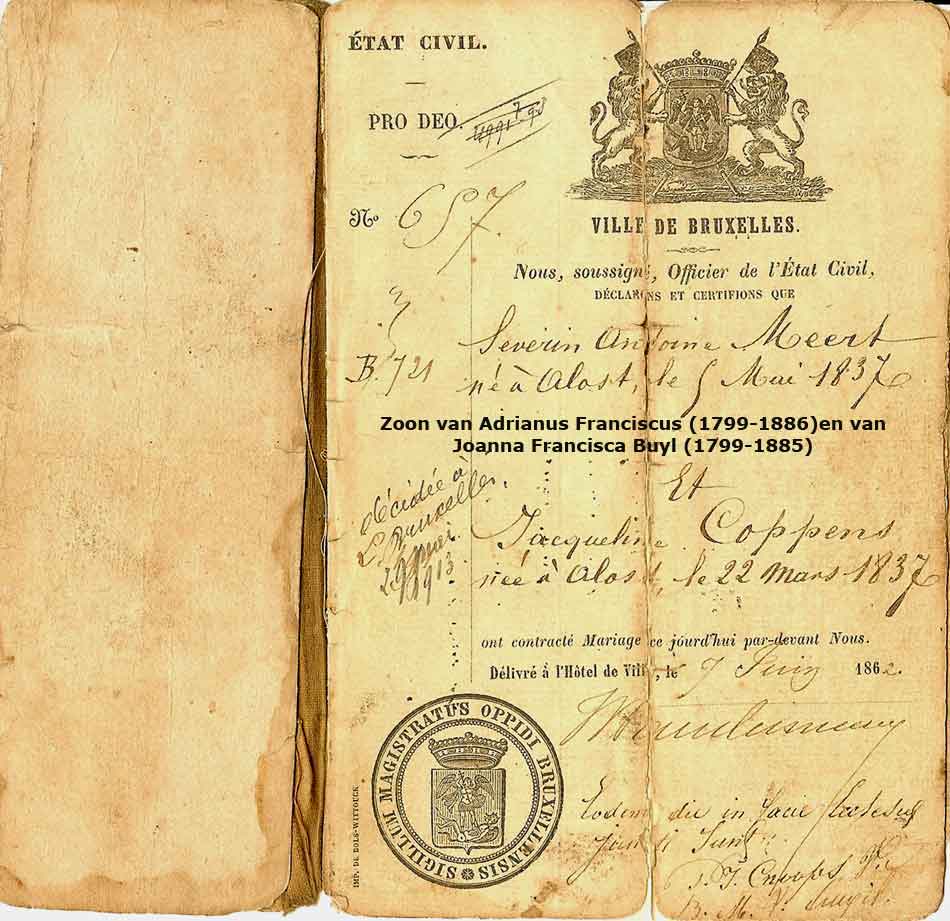 ÉTAT CIVIL.
PRO DEO.
No 657.
VILLE DE BRUXELLES.
Nous, soussigné, Officier de l'État Civil,
DÉCLARONS ET CERTIFIONS QUE
Severin Antoine Meert
né à Alost, le 5 Mai 1837
B. 721
Zoon van Adrianus Franciscus (1799-1886)en van
Joanna Francisca Buyl (1799-1885)
Et
Jacqueline Coppens
née à Alost, le 22 mars 1837
décidée à
Bruxelles
1913
ont contracté Mariage ce jourd'hui par-devant Nous.
Délivré à l'Hôtel de Ville, le 7 Juin 1862.
SIGILLUM MAGISTRATÛS OPPIDI BRUXELLENSIS
IMP. DE BOLS-WITTOUCK.
Eodem die in facie Ecclesiæ
Juncti Sunt